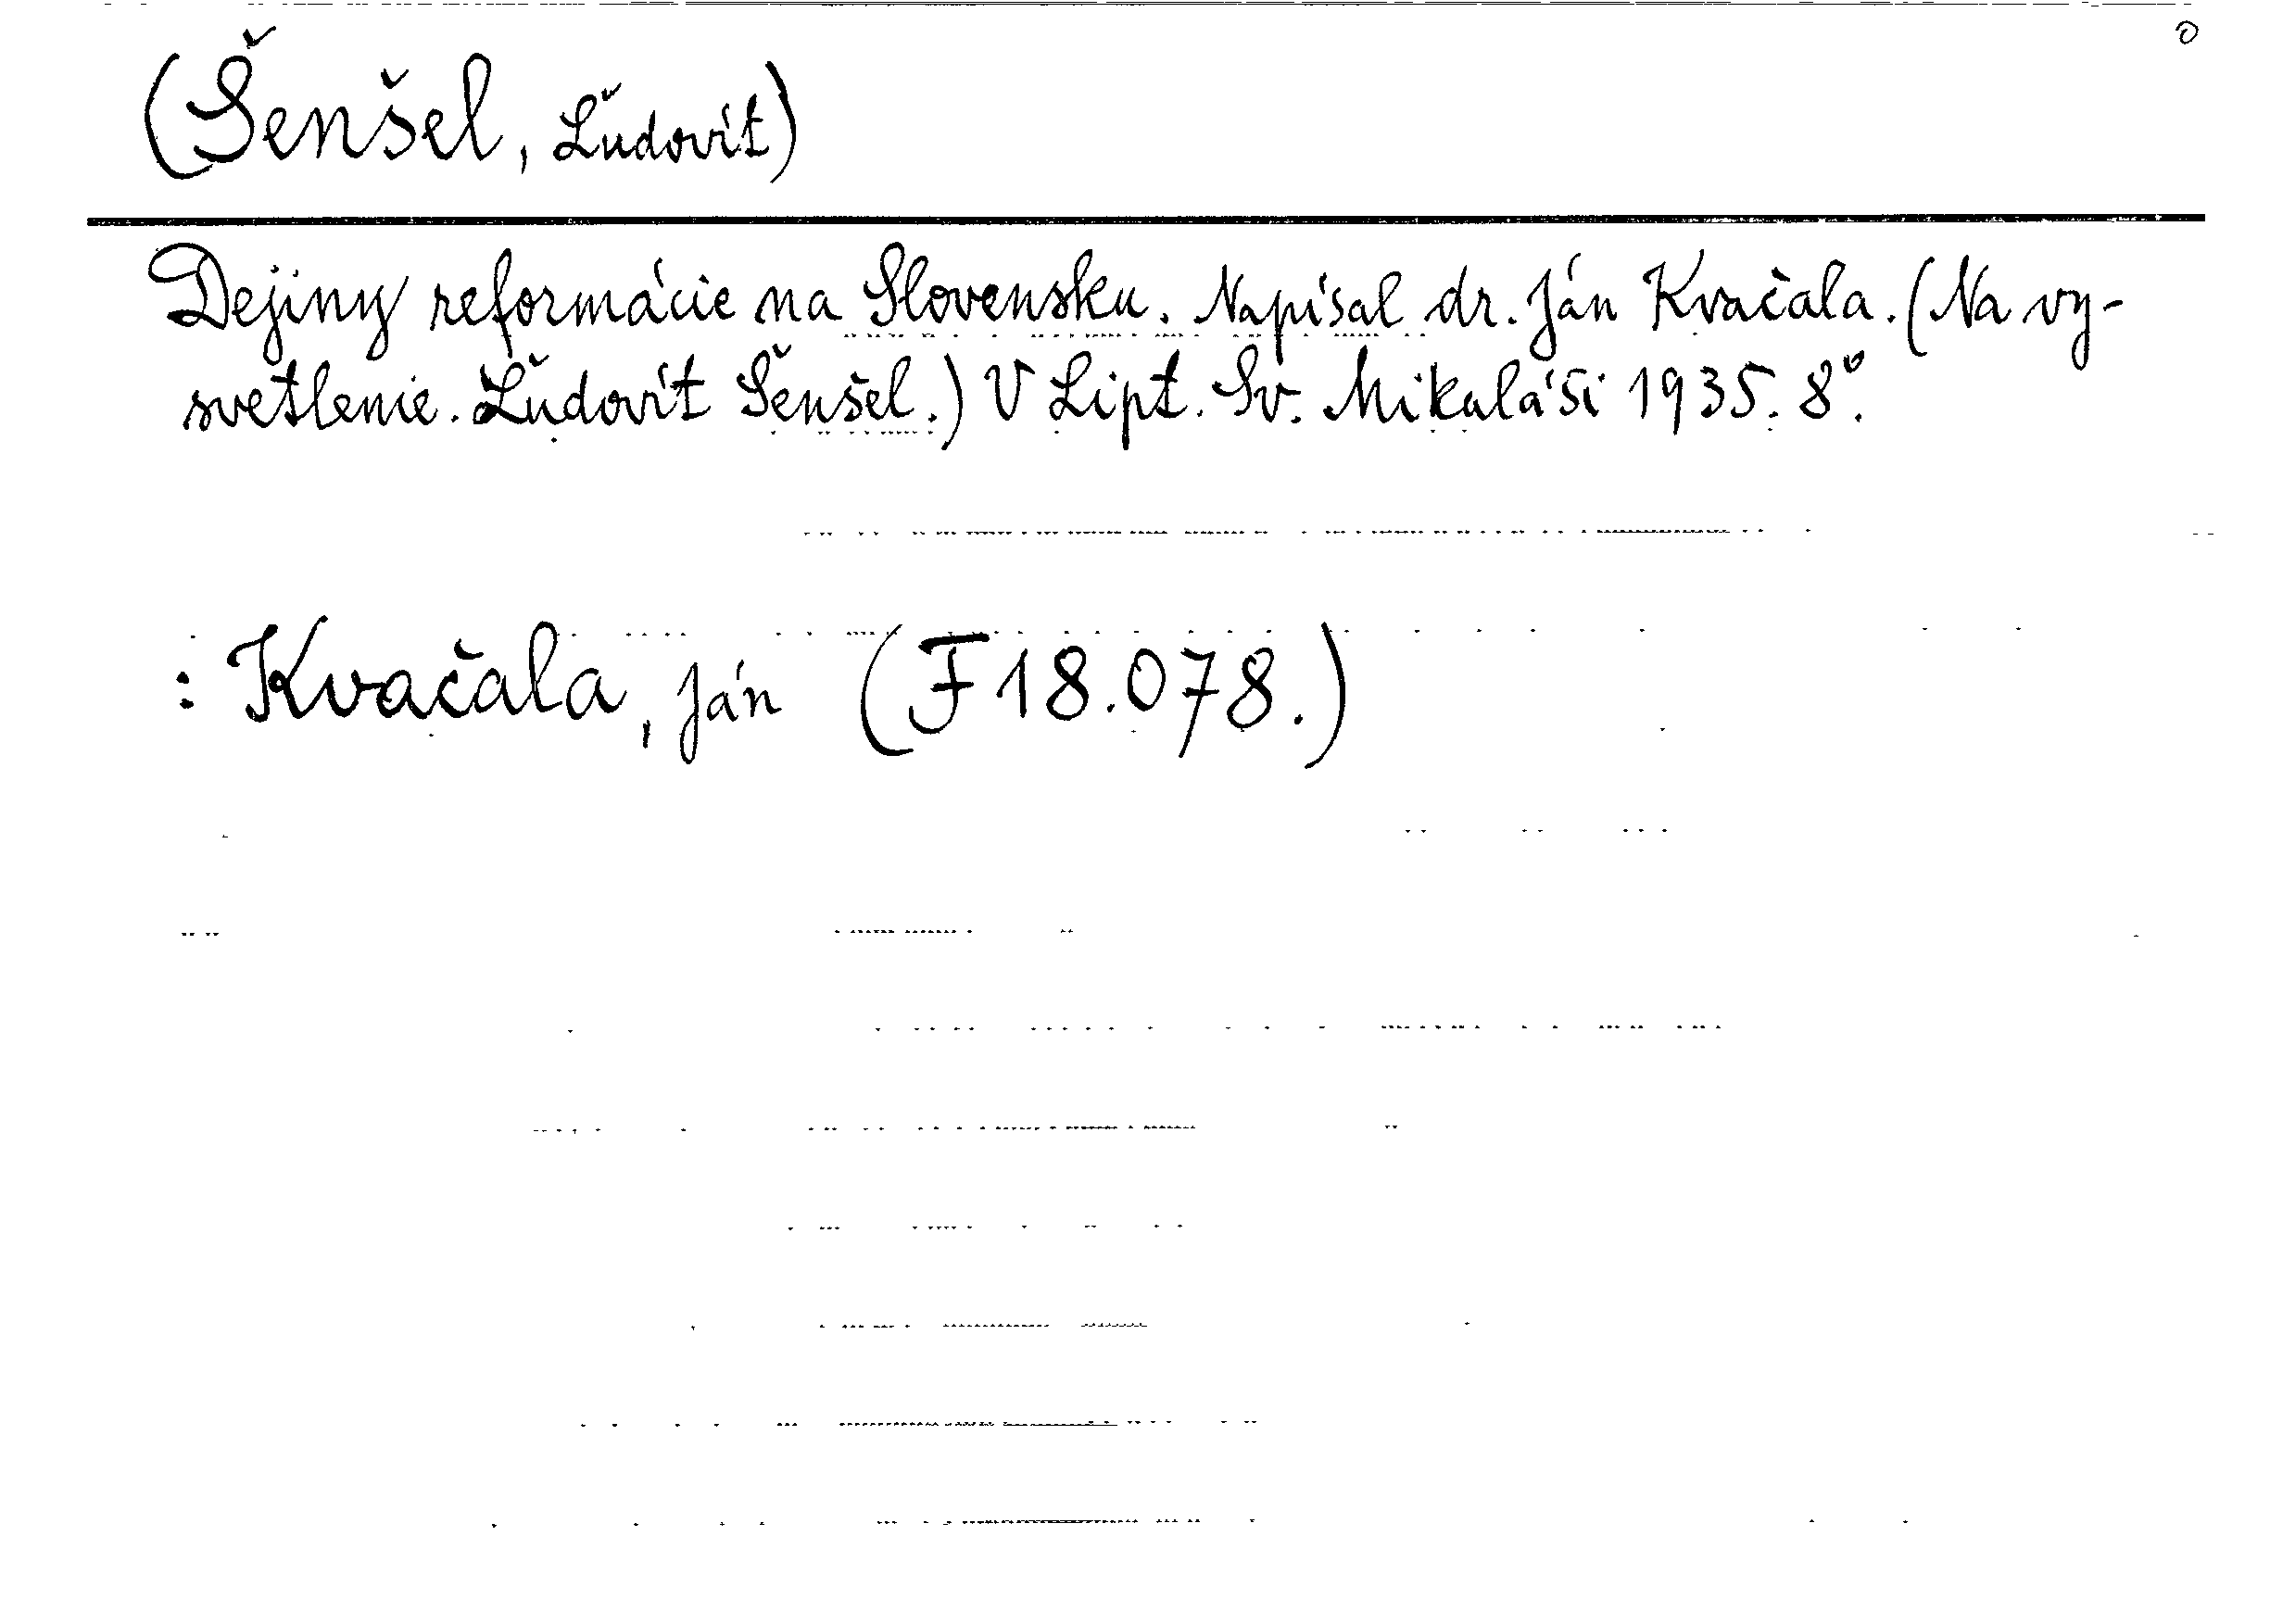 o
(Šenšel, Ľudovít)
Dejiny reformácie na Slovensku. Napísal dr. Ján Kvačala. (Na vy-
svetlenie. Ľudovít Šenšel.) V Lipt. Sv. Mikuláši 1935. 8°.
: Kvačala, Ján (F 18.078.)